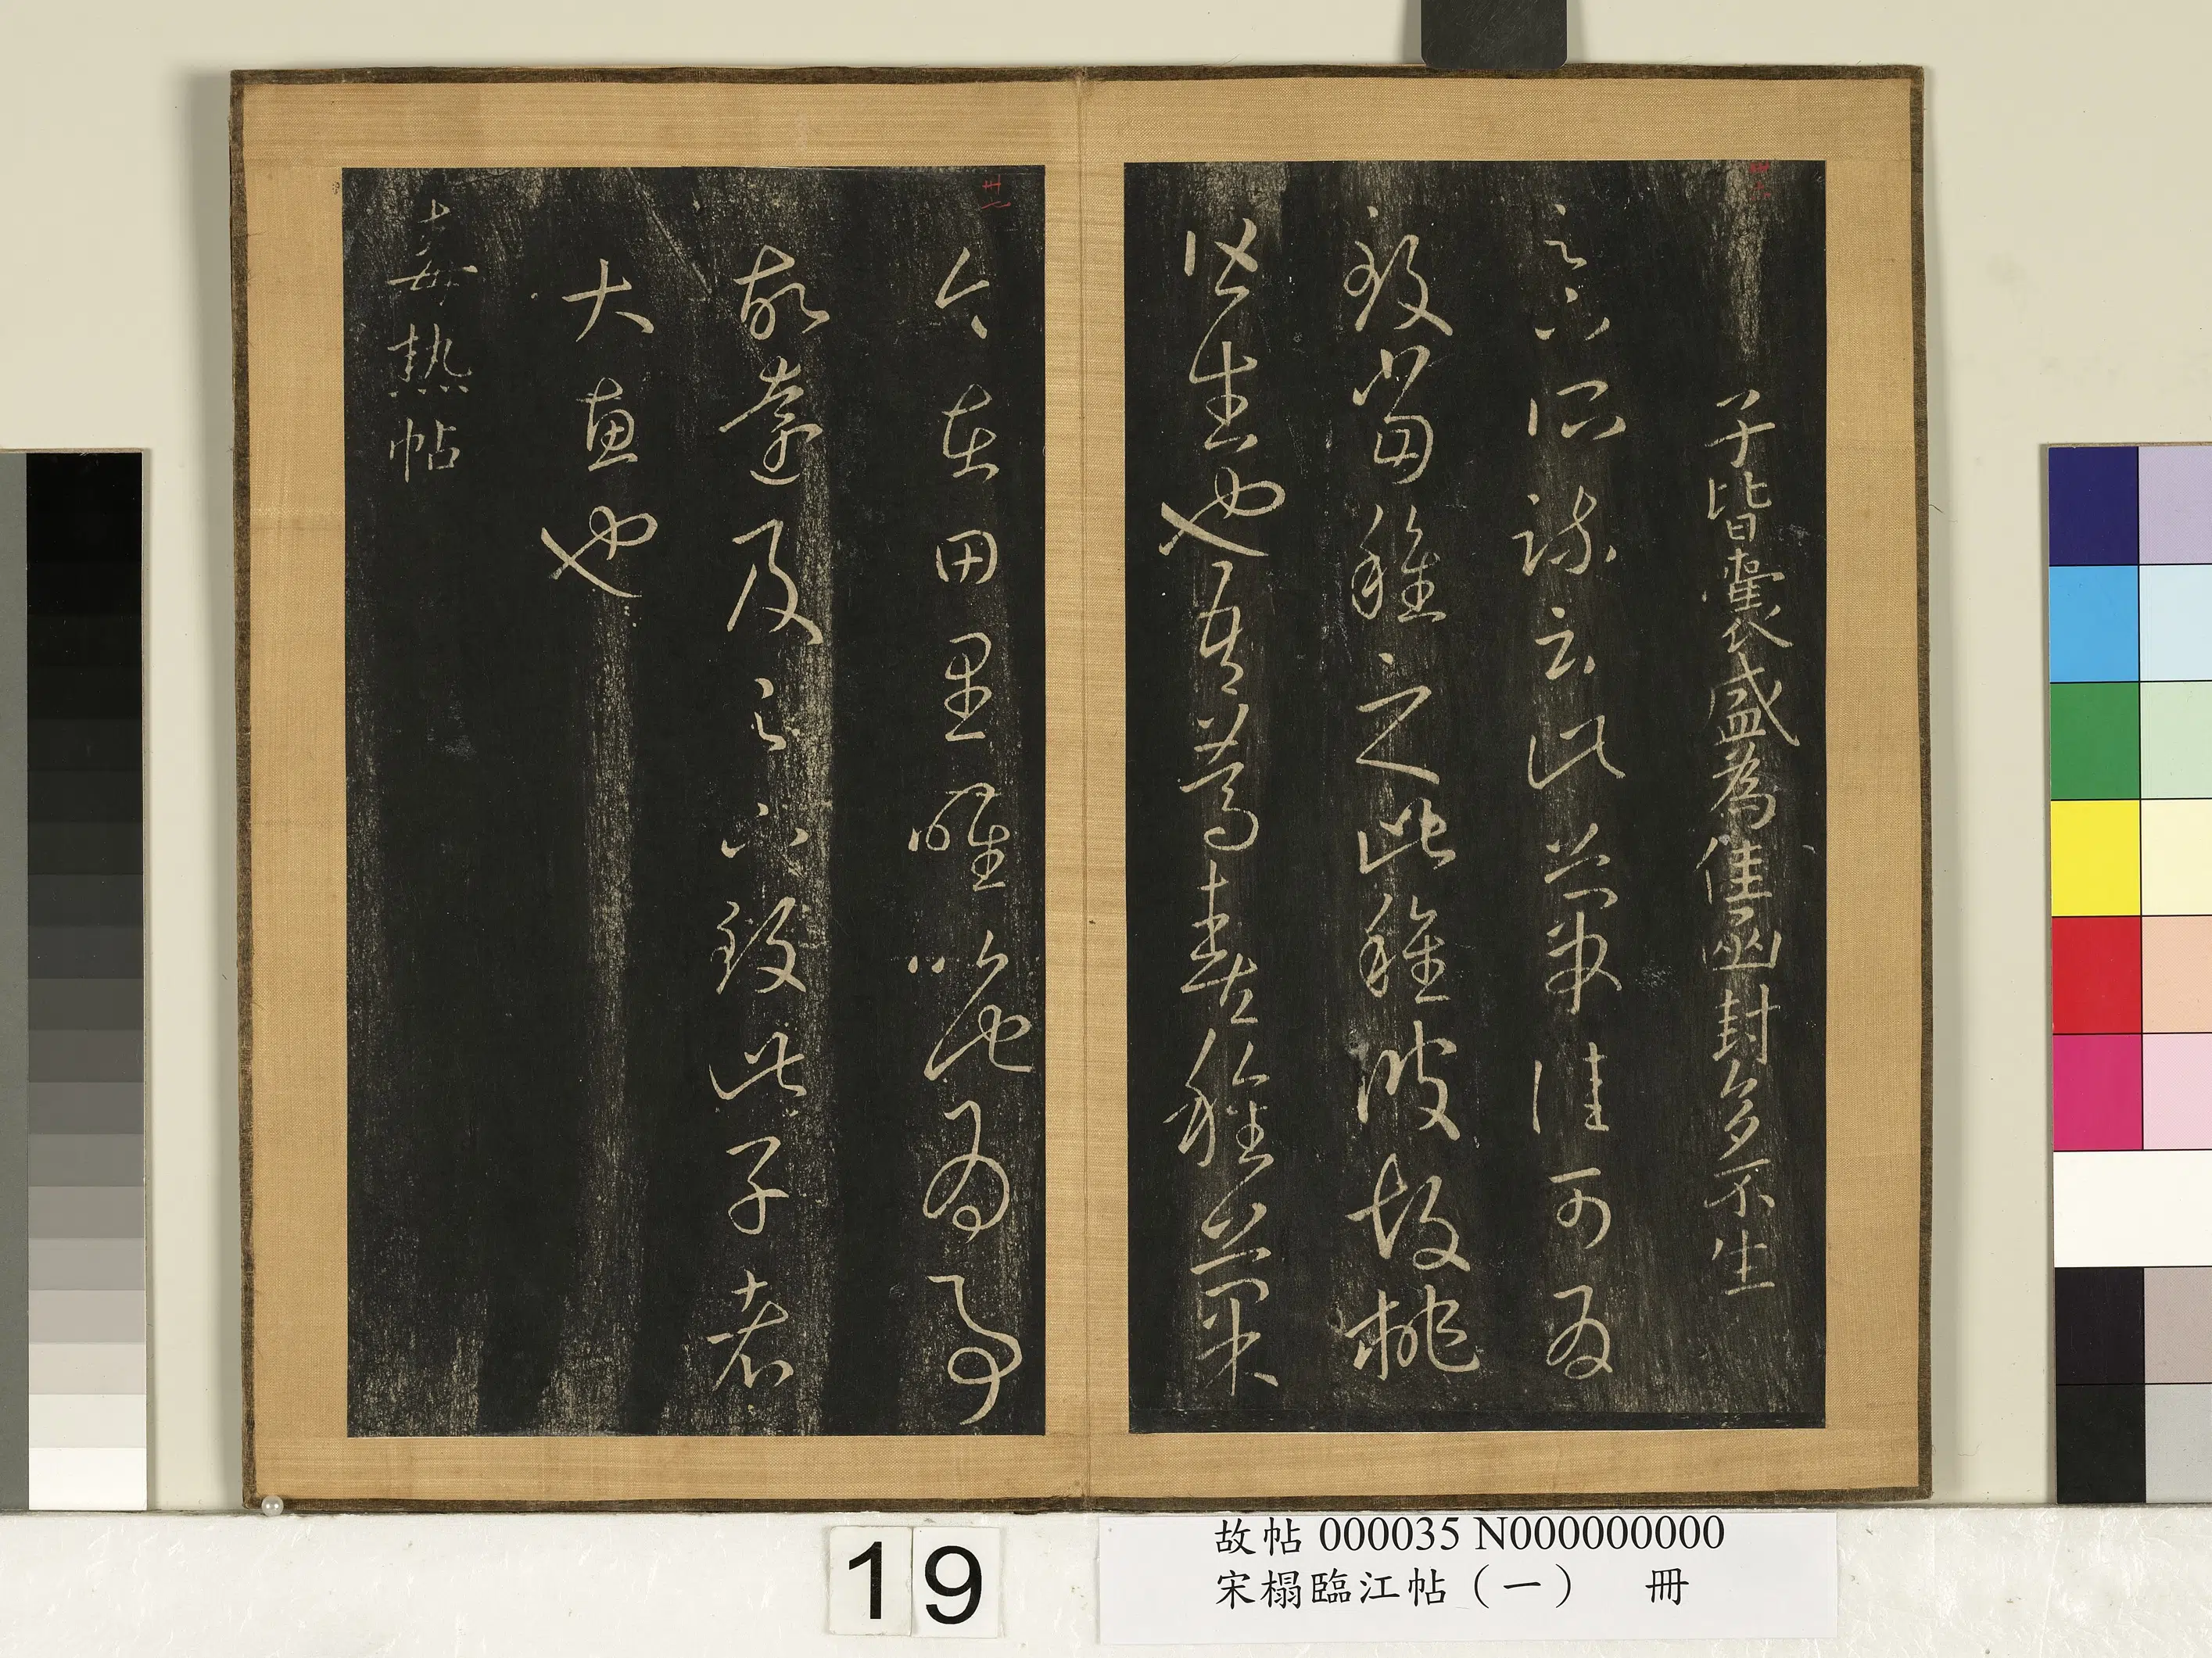 子皆囊盛為佳函封多不生
足下所疏云此菓佳可為
致當種之此種彼胡桃
皆生也吾篤喜種菓
今在田里唯以此為事
故遠及足下致此子者
大惠也
毒熱帖
19
故帖 000035 N000000000
宋榻臨江帖（一） 冊